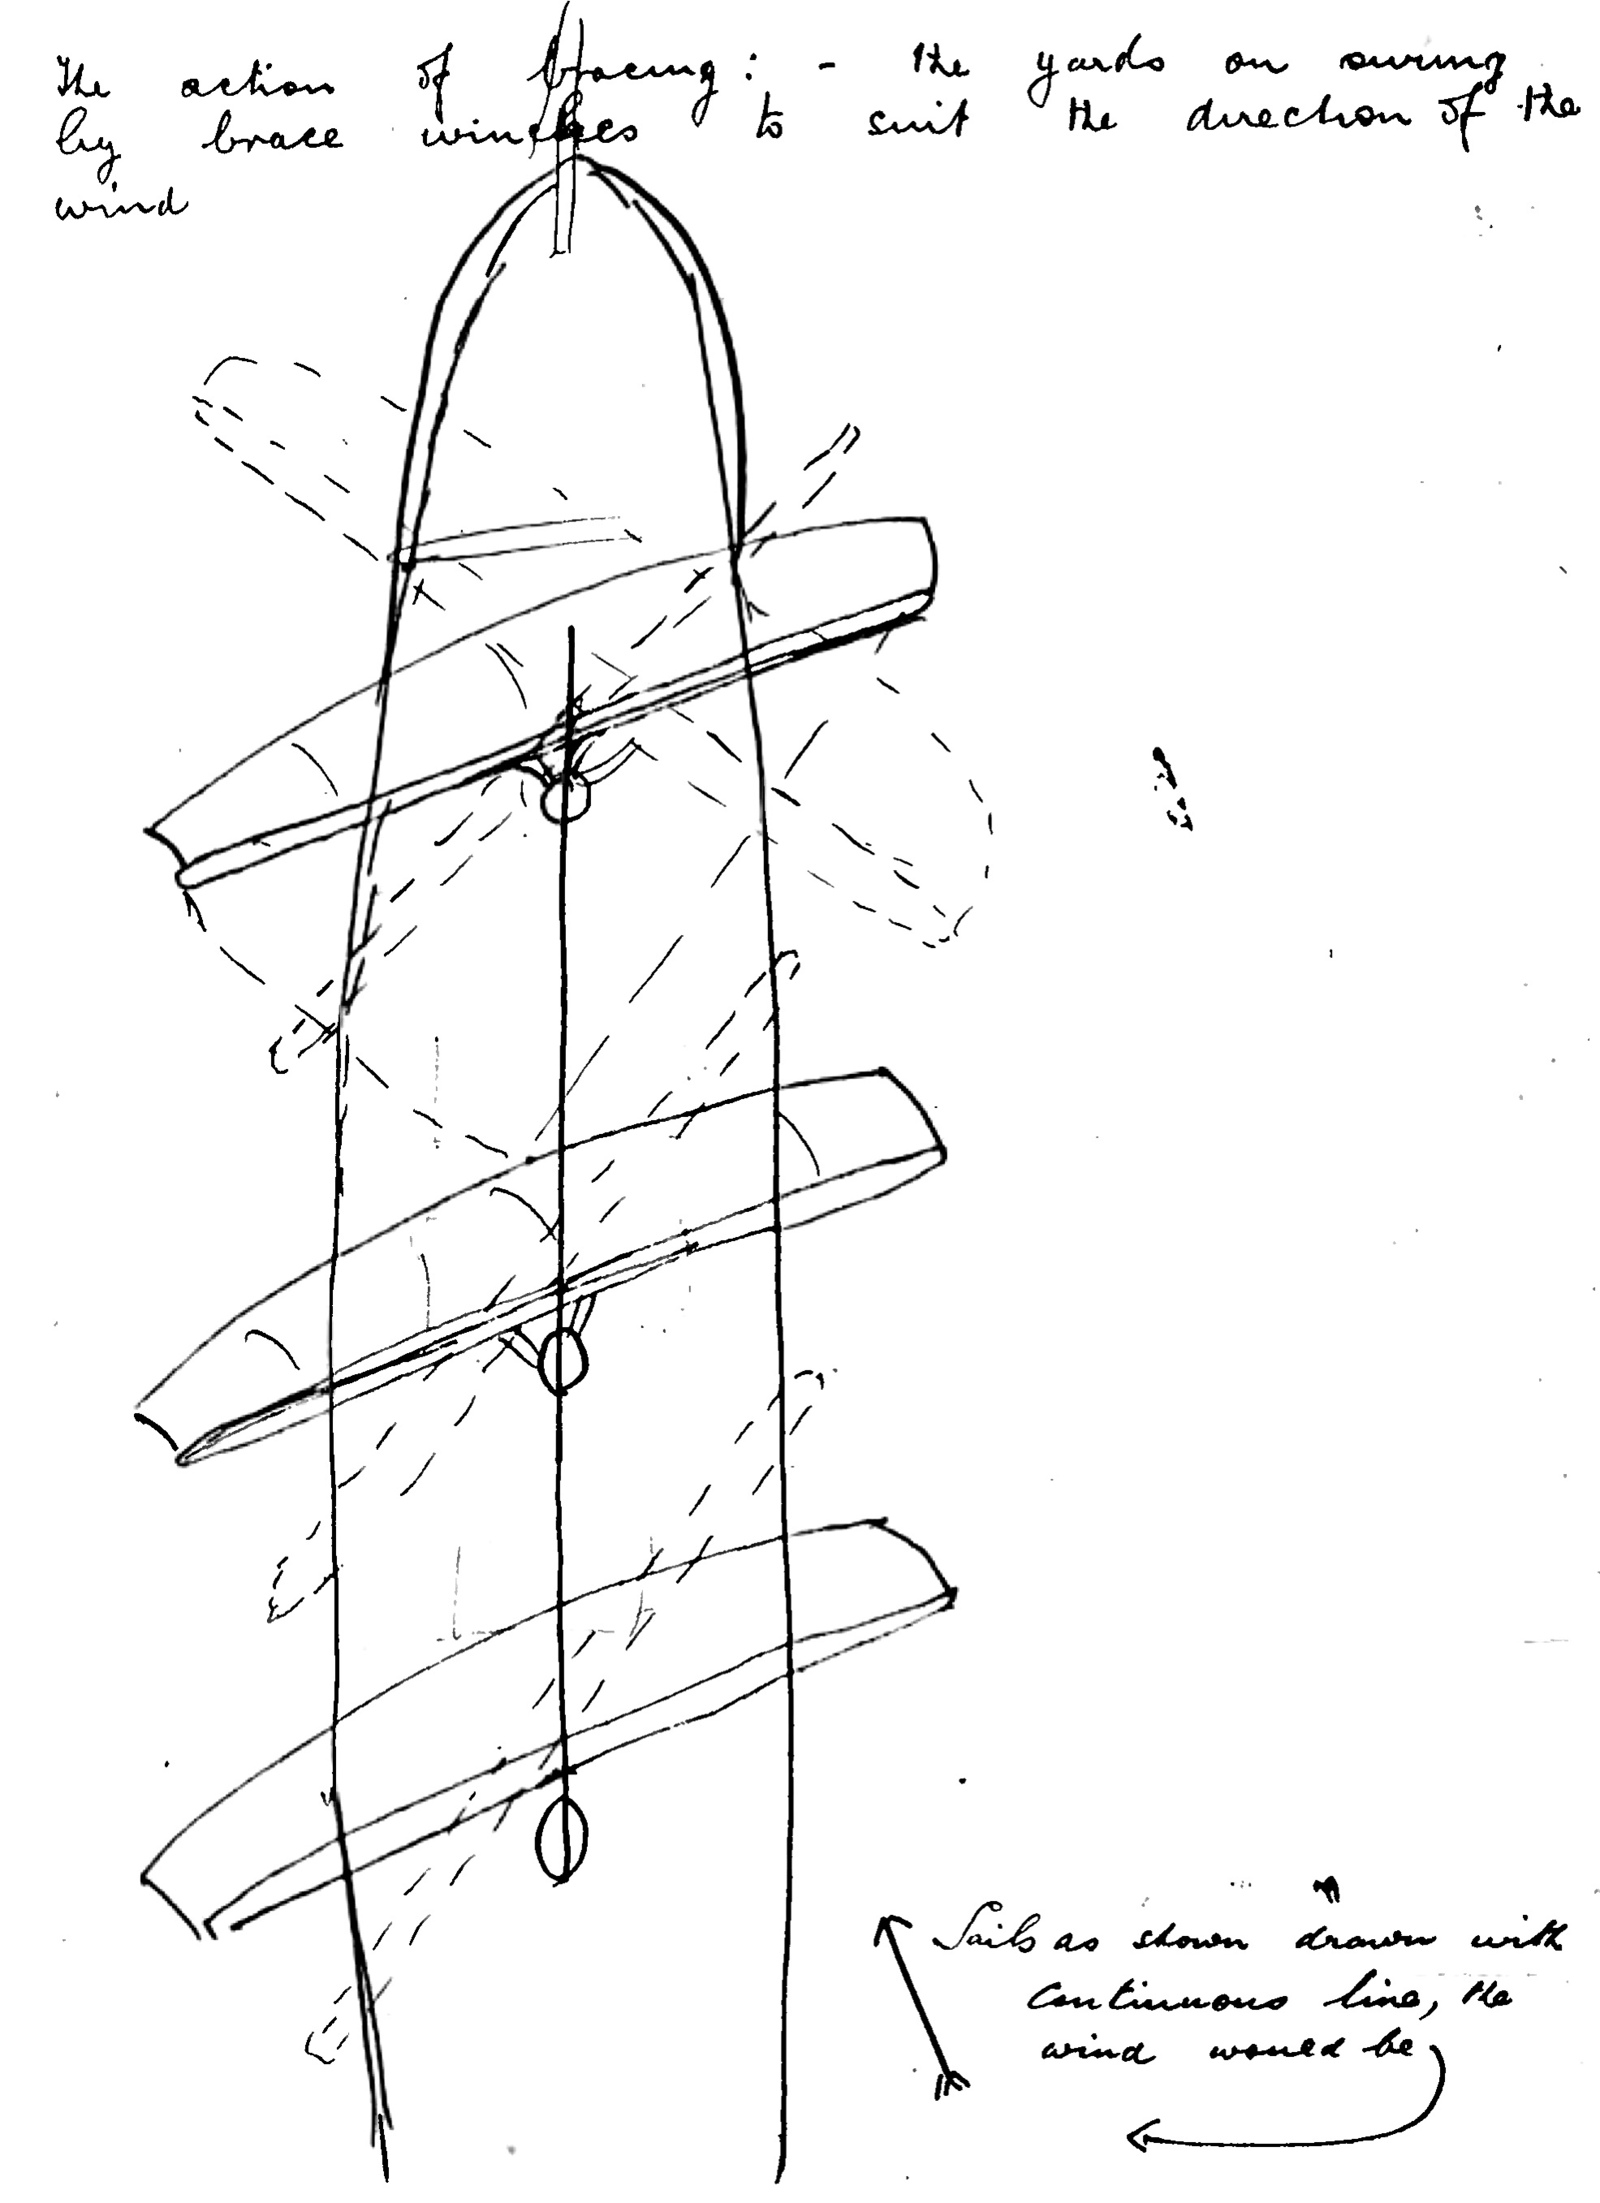 The action of bracing: - the yards on swung
by brace winches to suit the direction of the
wind
Sails as shown drawn with
continuous line, the
wind would be